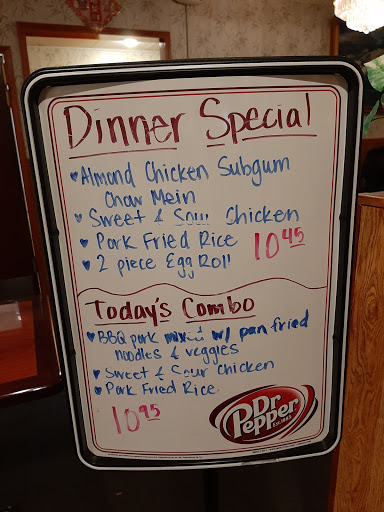 Dinner Special
♥Almond Chicken Subgum
Chow Mein
♥Sweet & Sour Chicken
♥Pork Fried Rice
10.45
♥2 piece Egg Roll
Today's Combo
♥BBQ pork mixed w/ pan fried
noodles & veggies
♥Sweet & Sour Chicken
♥Pork Fried Rice
10.95
Dr
Pepper